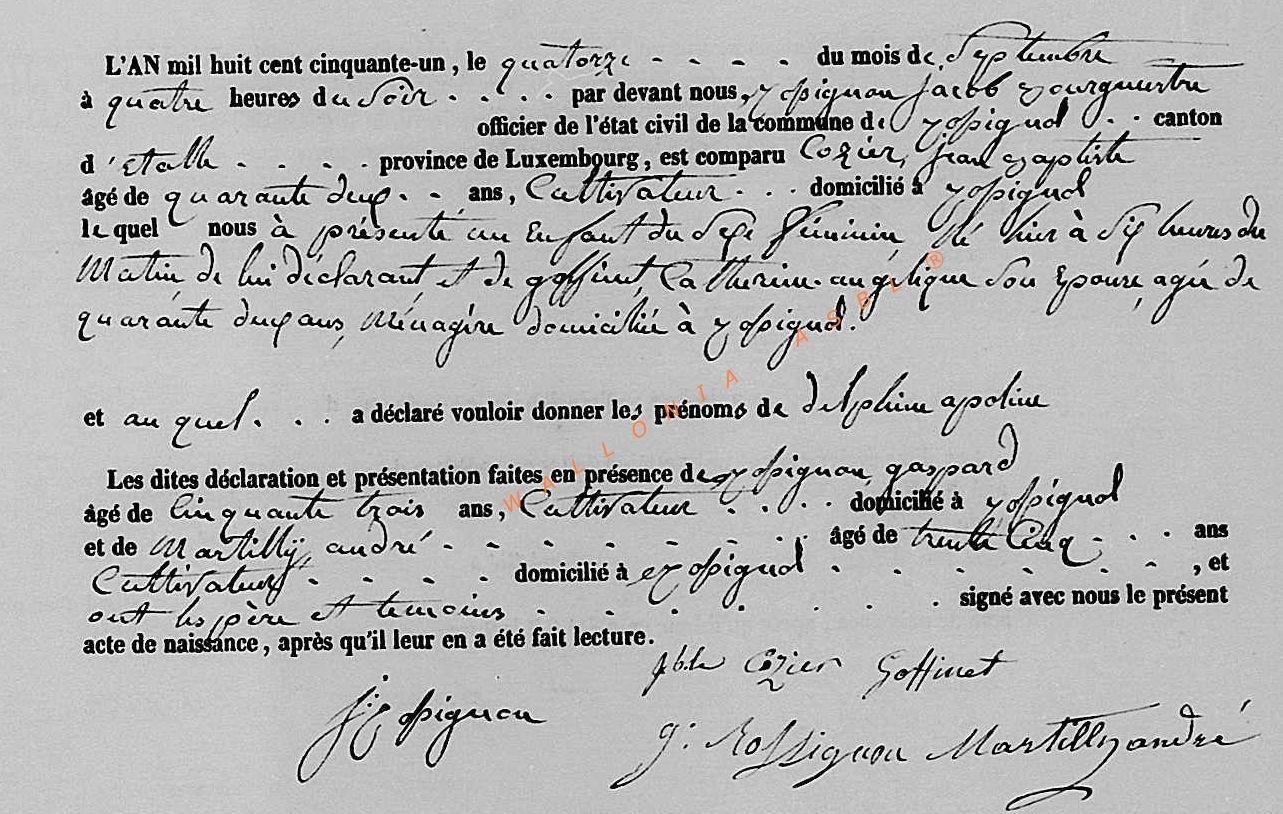 L'AN mil huit cent cinquante-un, le quatorze - - - - du mois de Septembre
à quatre heures du Soir . . . . par devant nous, rossignon jacob bourguemestre
officier de l'état civil de la commune de rossignol . . canton
d'etalle . . . . province de Luxembourg, est comparu Cozier, jean baptiste
âgé de quarante deux . . ans, Cultivateur . . . domicilié à rossignol
le quel nous à présenté un Enfant du Sexe féminin né hier à Six heures du
Matin de lui déclarant et de goffinet, Catherine angelique Son Epouse, agée de
quarante deux ans, Ménagère domiciliée à rossignol.
et au quel . . . a déclaré vouloir donner les prénoms de delphine apoline
Les dites déclaration et présentation faites en présence de rossignon, gaspard
âgé de Cinquante trois ans, Cultivateur . . . . domicilié à rossignol
et de Martilly, andré - - - - - - - . âgé de trente Cinq - . . . ans
Cultivateurs . . . . domicilié à rossignol . . . . . . . , et
ont les père et temoins . . . . . . . signé avec nous le présent
acte de naissance, après qu'il leur en a été fait lecture.
Cozier Goffinet
j: rossignon
g: Rossignon Martilly andré
WALLONIA ASBL ®